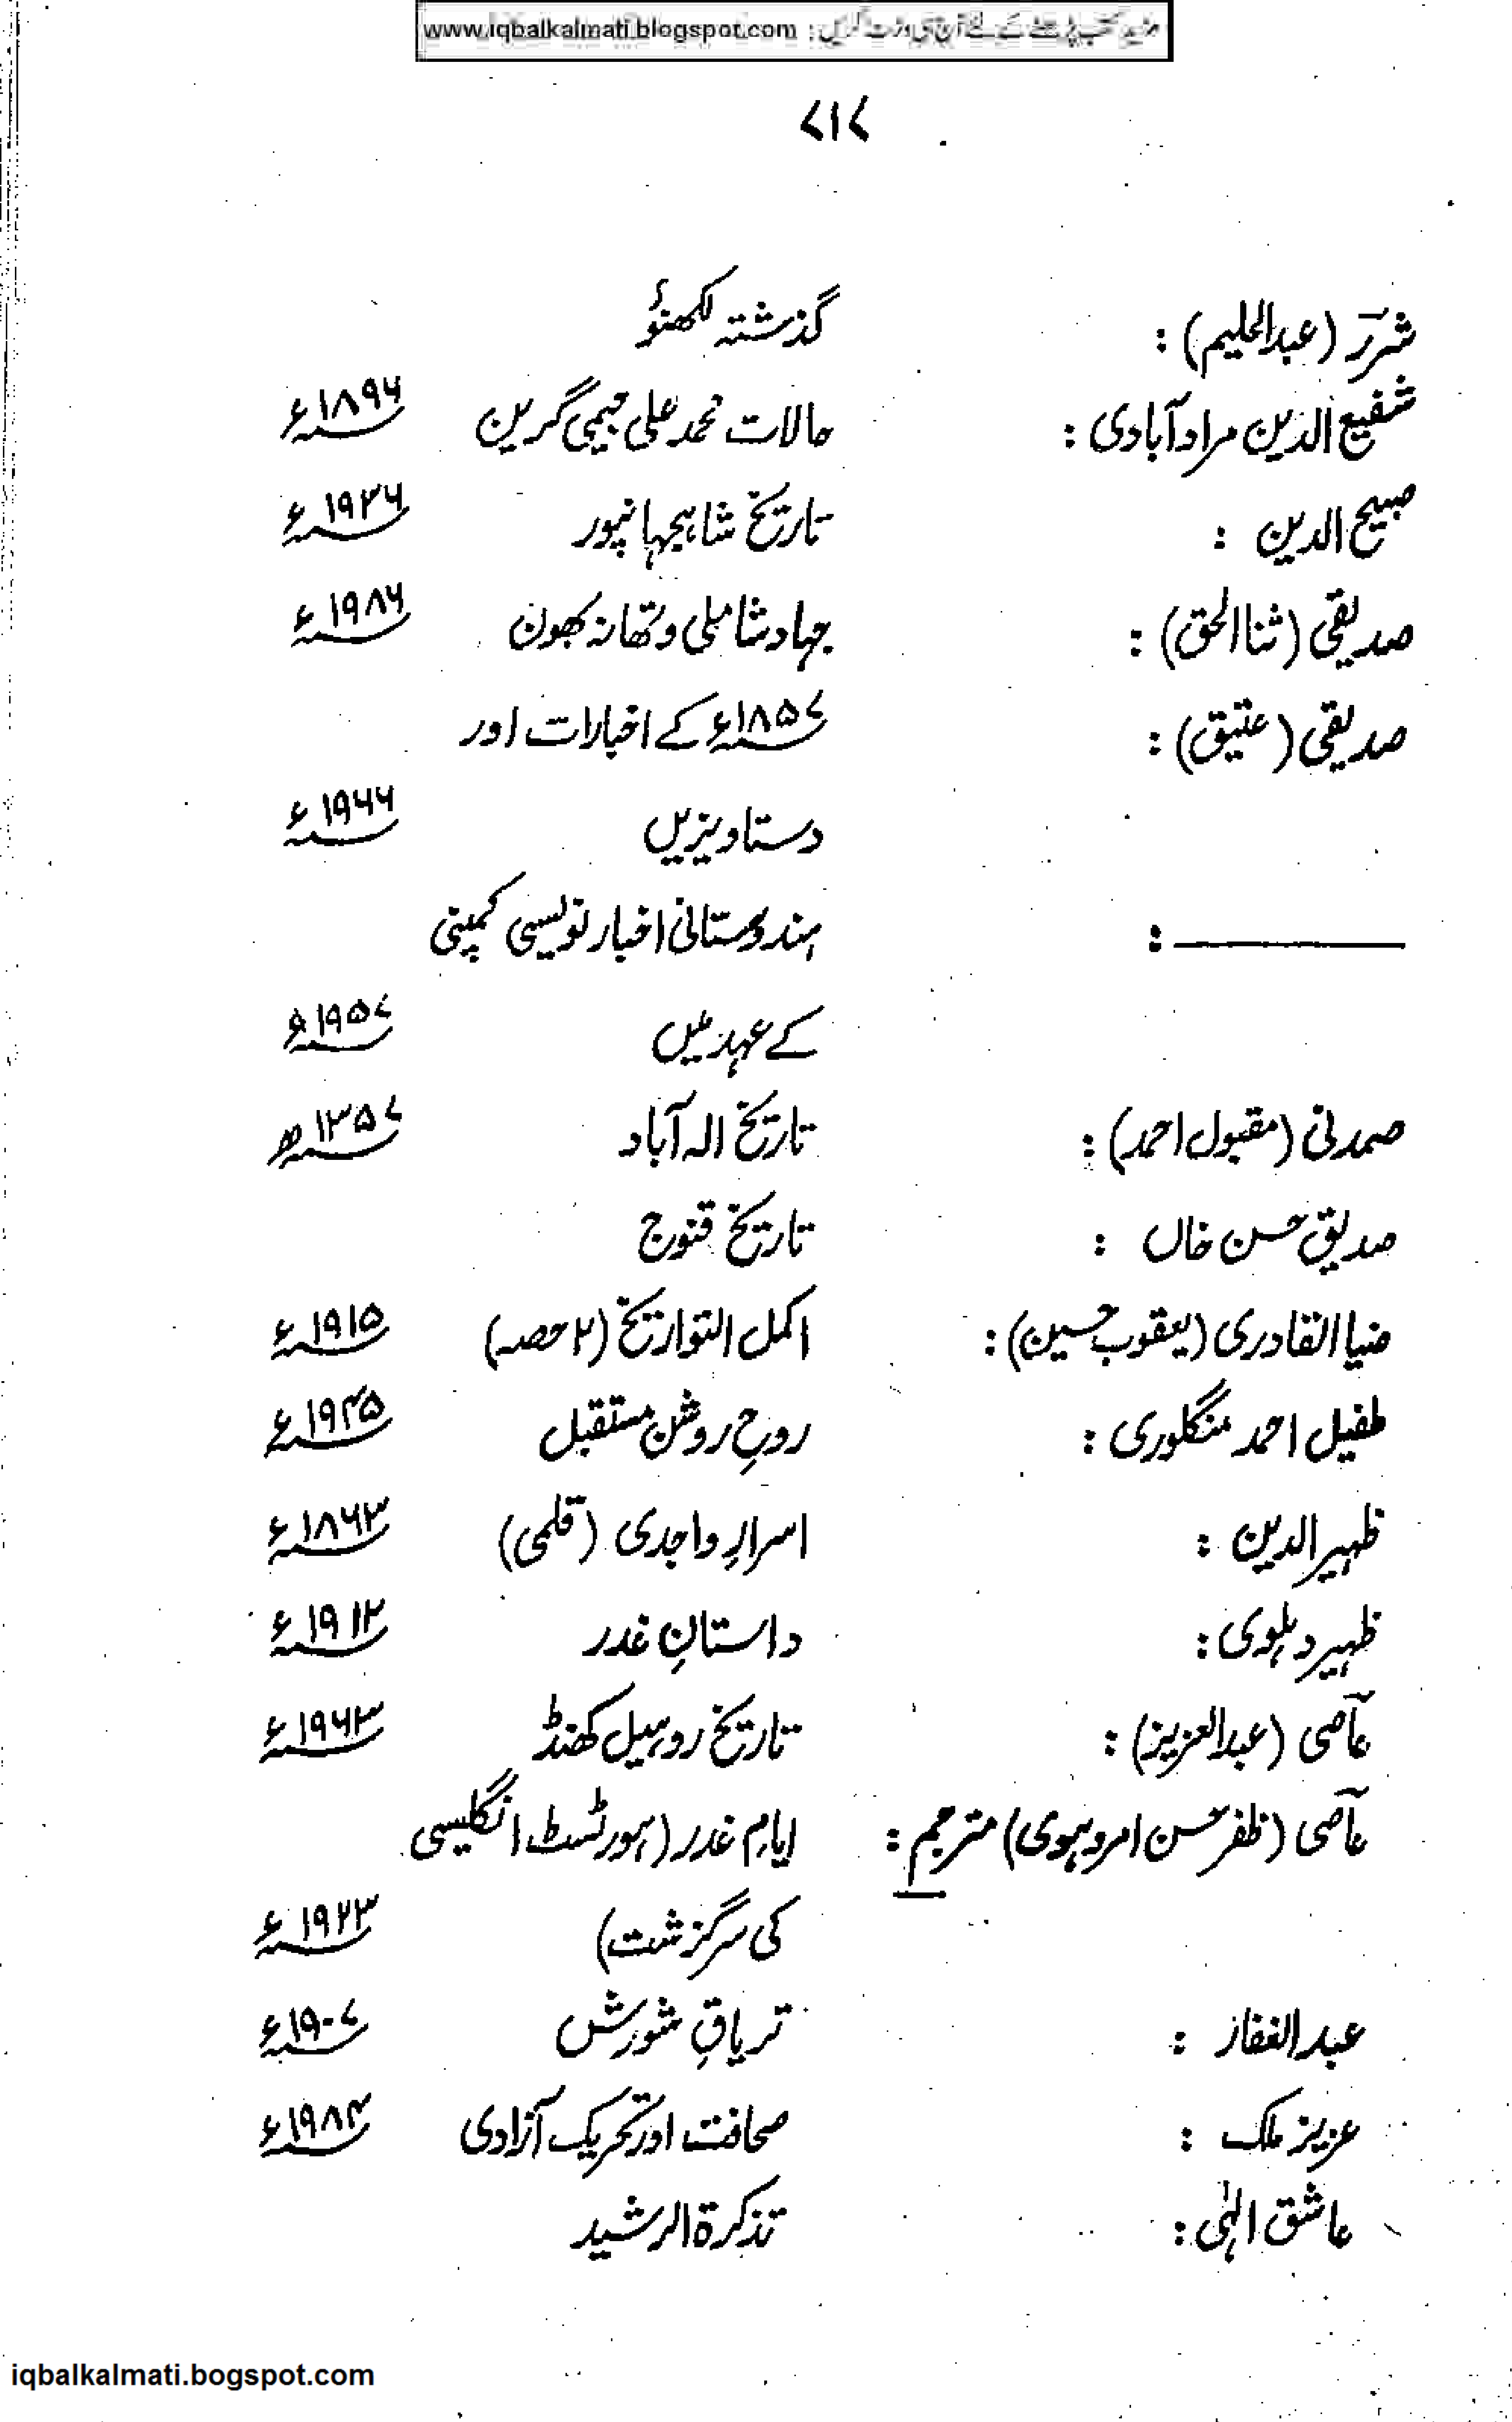 مزید کتب پڑھنے کے لئے آج ہی وزٹ کریں : www.iqbalkalmati.blogspot.com
۷۱۷
شرر (عبدالحلیم) : گذشتہ لکھنؤ
شفیع الدین مرادآبادی : حالات محمد علی جیمی گرین ۱۸۹۶ء
صبیح الدین : تاریخ شاہجہانپور ۱۹۳۶ء
صدیقی (ثناالحق) : جہاد شاملی و تھانہ بھون ۱۹۸۶ء
صدیقی (عتیق) : ۱۸۵۷ء کے اخبارات اور
دستاویزیں ۱۹۶۶ء
ــــــــــــ : ہندوستانی اخبار نویسی کمپنی
کے عہد میں ۱۹۵۷ء
صمدنی (مقبول احمد) : تاریخ الہ آباد ۱۳۵۷ھ
صدیق حسن خاں : تاریخ قنوج
ضیا القادری (یعقوب حسین) : اکمل التواریخ (۲ حصہ) ۱۹۱۵ء
طفیل احمد منگلوری : روحِ روشن مستقبل ۱۹۴۵ء
ظہیر الدین : اسرارِ واجدی (قلمی) ۱۸۶۳ء
ظہیر دہلوی : داستانِ غدر ۱۹۱۲ء
عاصی (عبدالعزیز) : تاریخ روہیل کھنڈ ۱۹۶۳ء
عاصی (ظفر حسن امروہوی) مترجم : ایامِ غدر (ہورٹسٹ انگلیسی
کی سرگزشت) ۱۹۲۳ء
عبد الغفار : تریاقِ شورش ۱۹۰۷ء
عزیز ملک : صحافت اور تحریک آزادی ۱۹۸۴ء
عاشق الٰہی : تذکرۃ الرشید
iqbalkalmati.bogspot.com